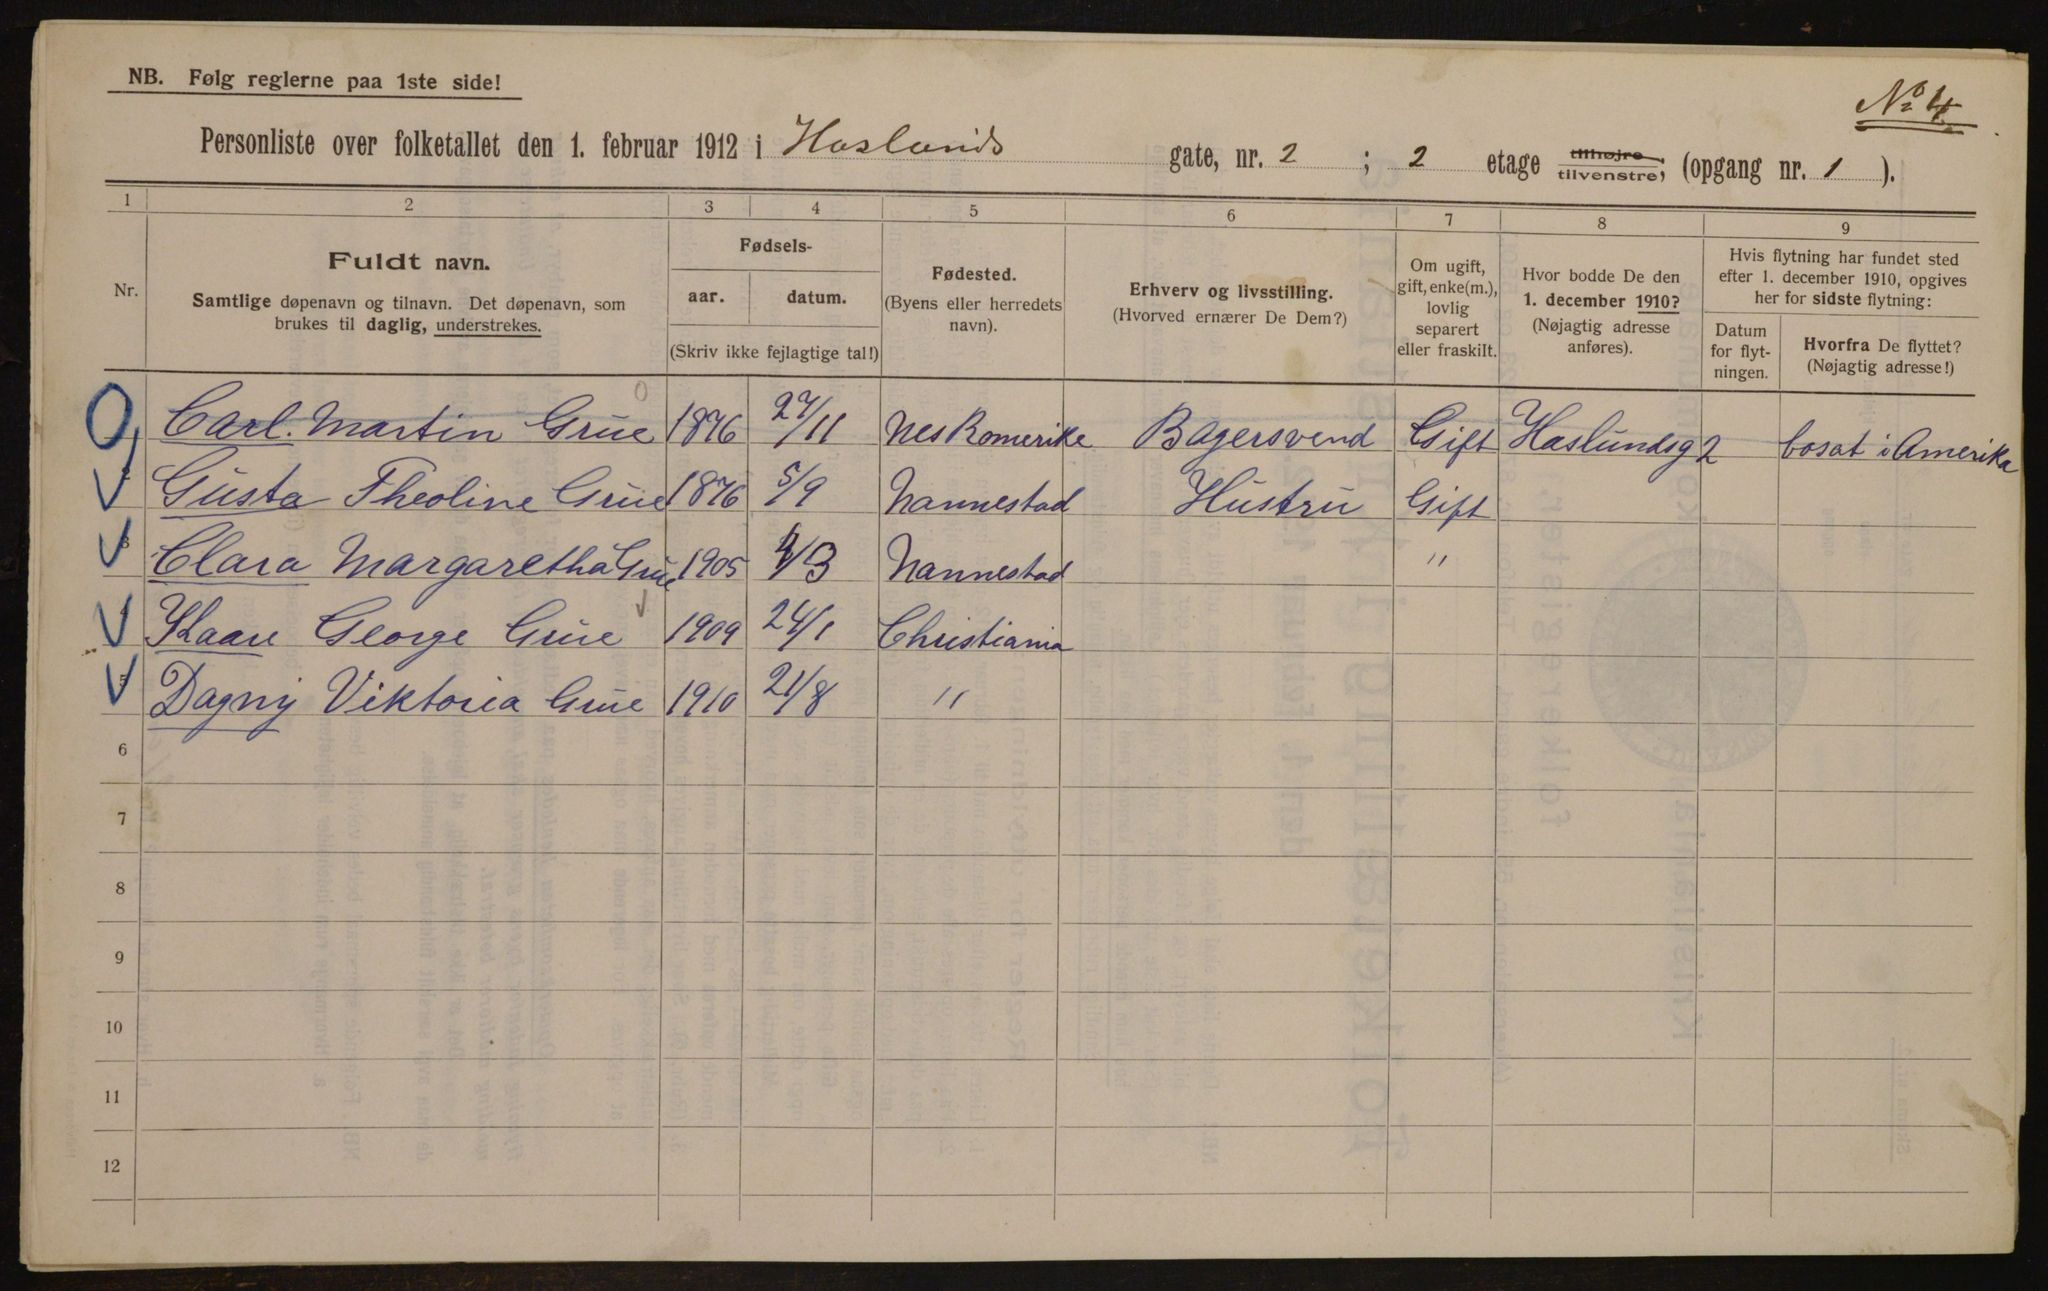 NB. Følg reglerne paa 1ste side!
No 4
Personliste over folketallet den 1. februar 1912 i Haslunds gate, nr. 2 ; 2 etage tilhøjre, tilvenstre, (opgang nr. 1 ).
1 2 3 4 5 6 7 8 9
Nr.
Fuldt navn.
Samtlige døpenavn og tilnavn. Det døpenavn, som
brukes til daglig, understrekes.
Fødsels-
aar. datum.
(Skriv ikke fejlagtige tal!)
Fødested.
(Byens eller herredets
navn).
Erhverv og livsstilling.
(Hvorved ernærer De Dem?)
Om ugift,
gift, enke(m.),
lovlig
separert
eller fraskilt.
Hvor bodde De den
1. december 1910?
(Nøjagtig adresse
anføres).
Hvis flytning har fundet sted
efter 1. december 1910, opgives
her for sidste flytning:
Datum
for flyt-
ningen.
Hvorfra De flyttet?
(Nøjagtig adresse!)
Carl. Martin Grue 1876 27/11 Nes Romerike Bagersvend Gift Haslundsg 2 bosat i Amerika
Gusta Theoline Grue 1876 5/9 Nannestad Hustru Gift
3 Clara Margaretha Grue 1905 4/3 Nannestad "
Kaare George Grue 1909 24/1 Christiania
5 Dagny Viktoria Grue 1910 21/8 "
6
7
8
9
10
11
12